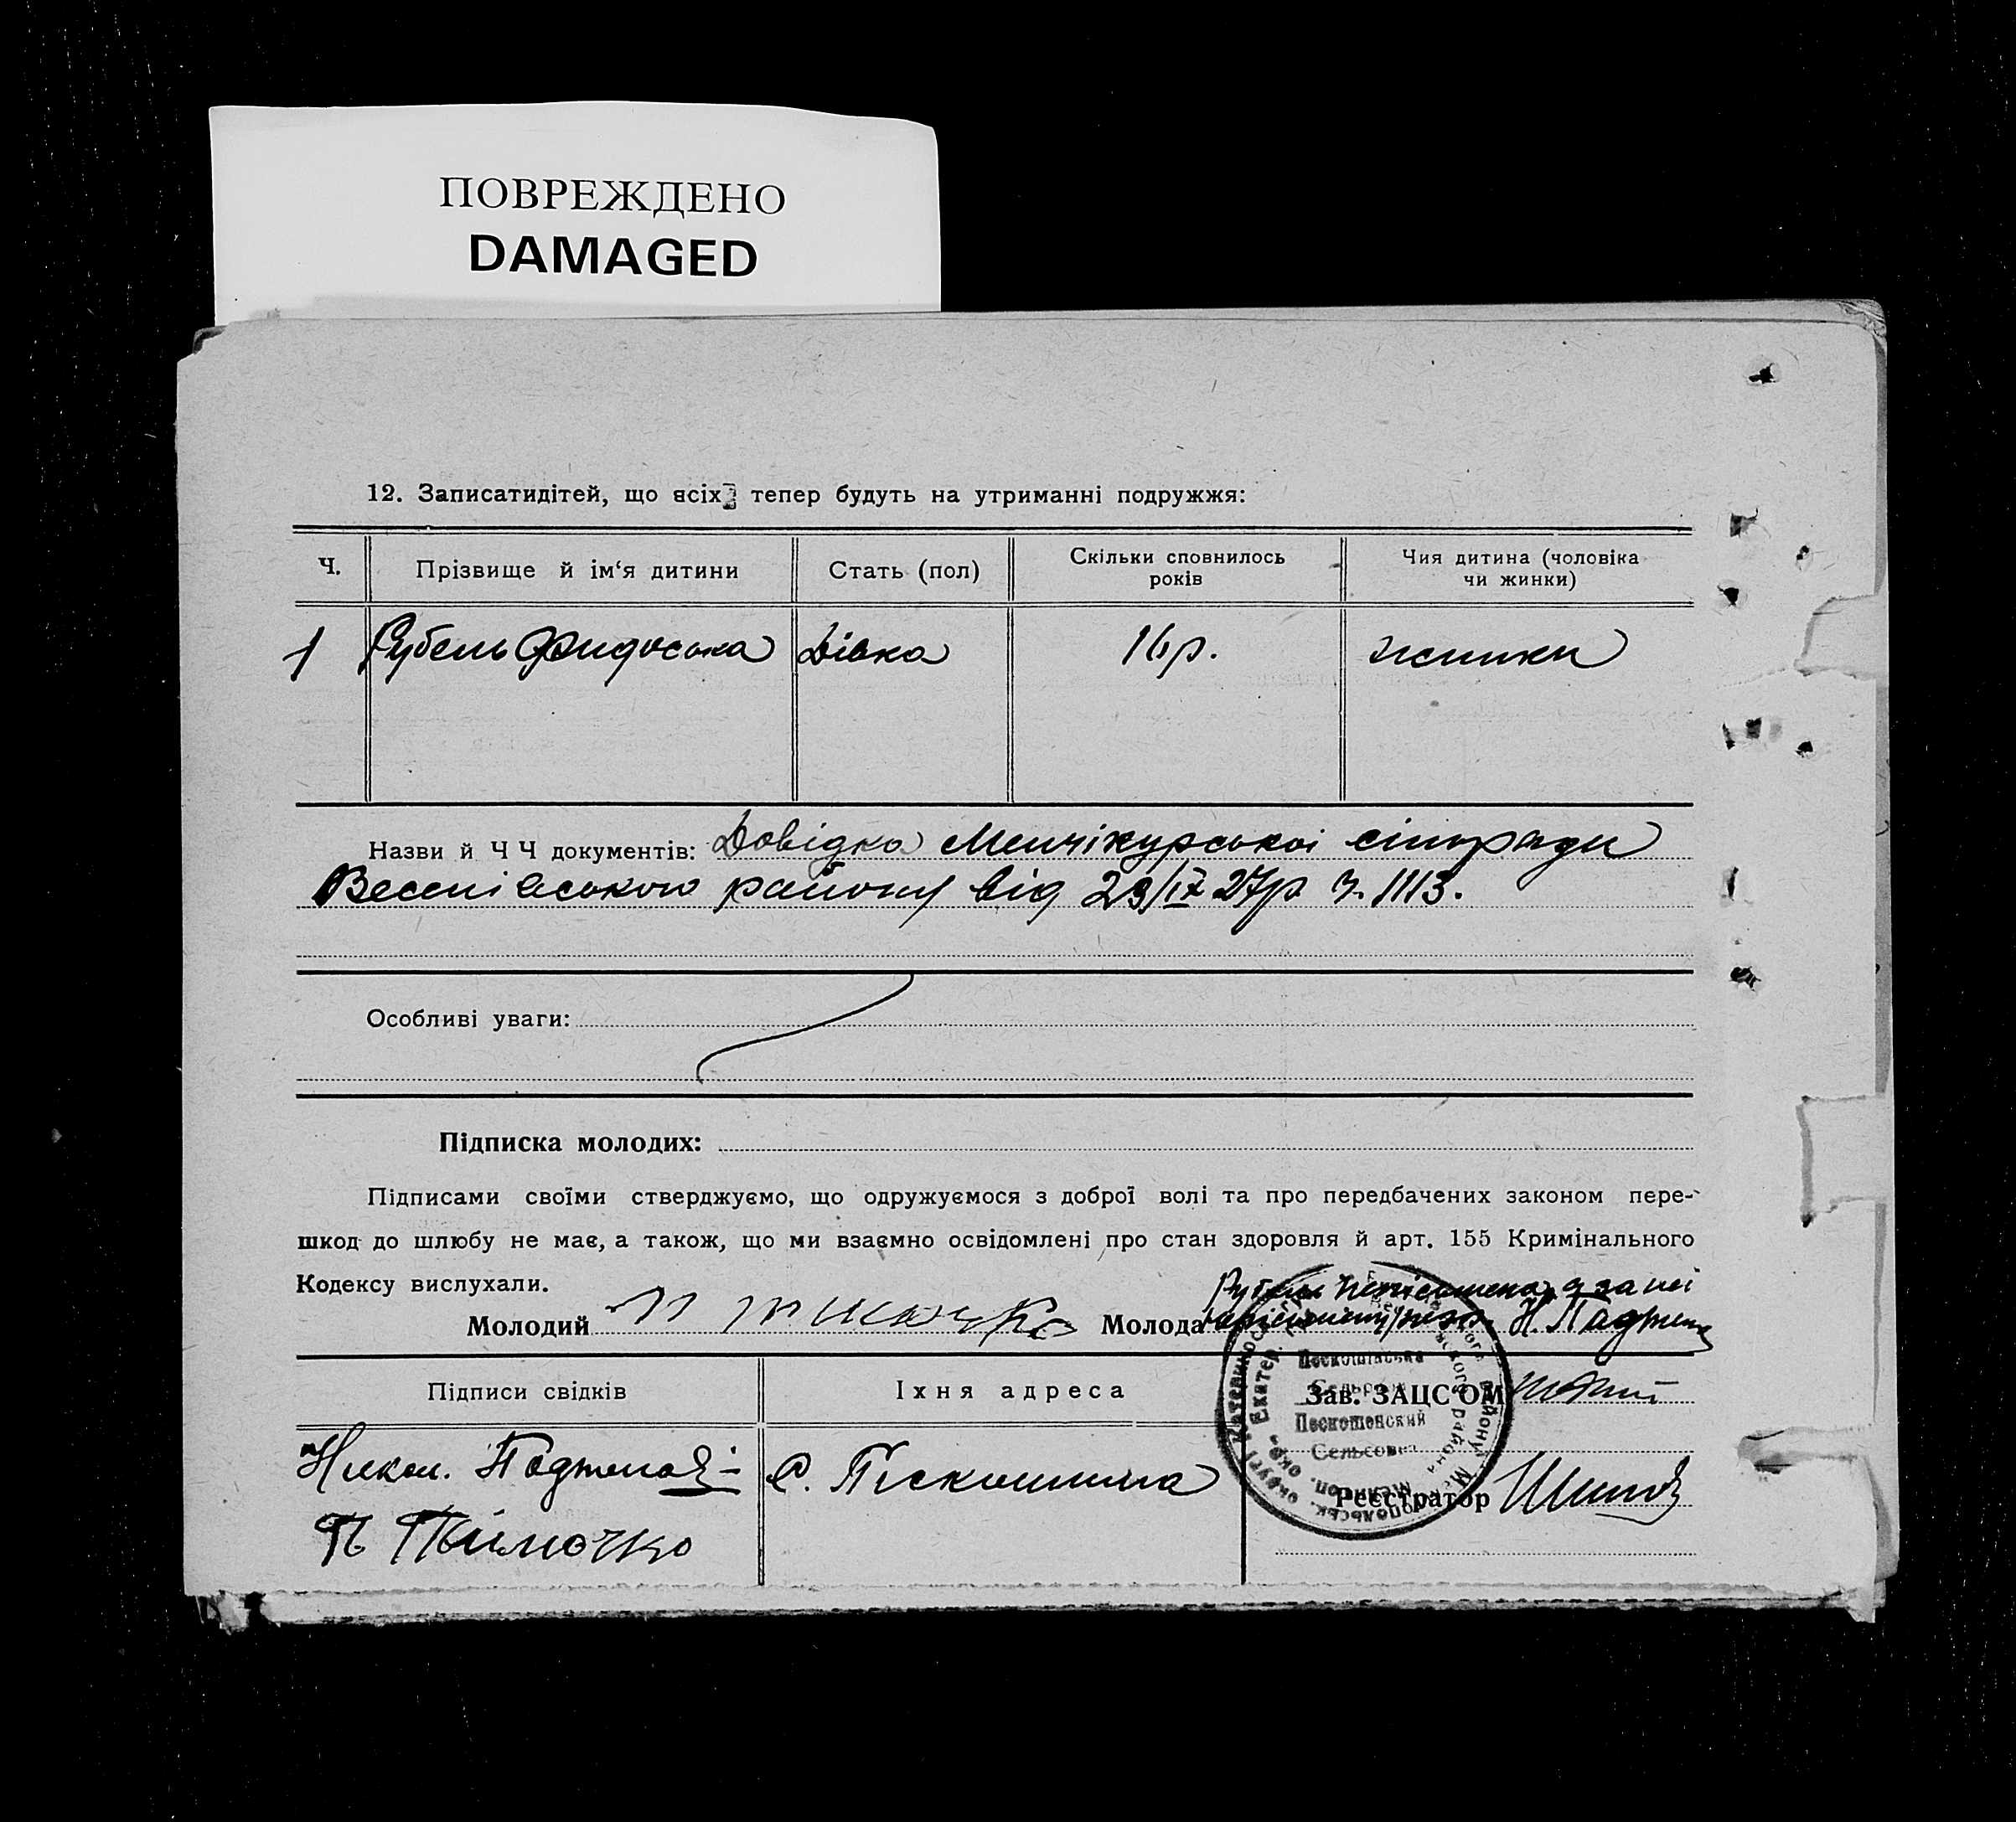 ПОВРЕЖДЕНО
DAMAGED
12. Записатидітей, що всіх тепер будуть на утриманні подружжя:
Ч. Прізвище й ім‘я дитини Стать (пол) Скільки сповнилось років Чия дитина (чоловіка чи жинки)
1 Рубель Фидоська Дівка 16р. жинки
Назви й ЧЧ документів: Довідка Менчікурської сільради
Веселівського району від 29/IX 27р. ч. 1113.
Особливі уваги:
Підписка молодих:
Підписами своїми стверджуємо, що одружуємося з доброї волі та про передбачених законом пере-
шкод до шлюбу не має, а також, що ми взаємно освідомлені про стан здоровля й арт. 155 Кримінального
Кодексу вислухали.
Рубель неписьмена, а за неї
Молодий Молода Н.
Підписи свідків Їхня адреса Зав. ЗАЦС'ОМ
Пескошинська
Пескошенский
Сельсовет
Никол. С. Пескошина Реєстратор
П